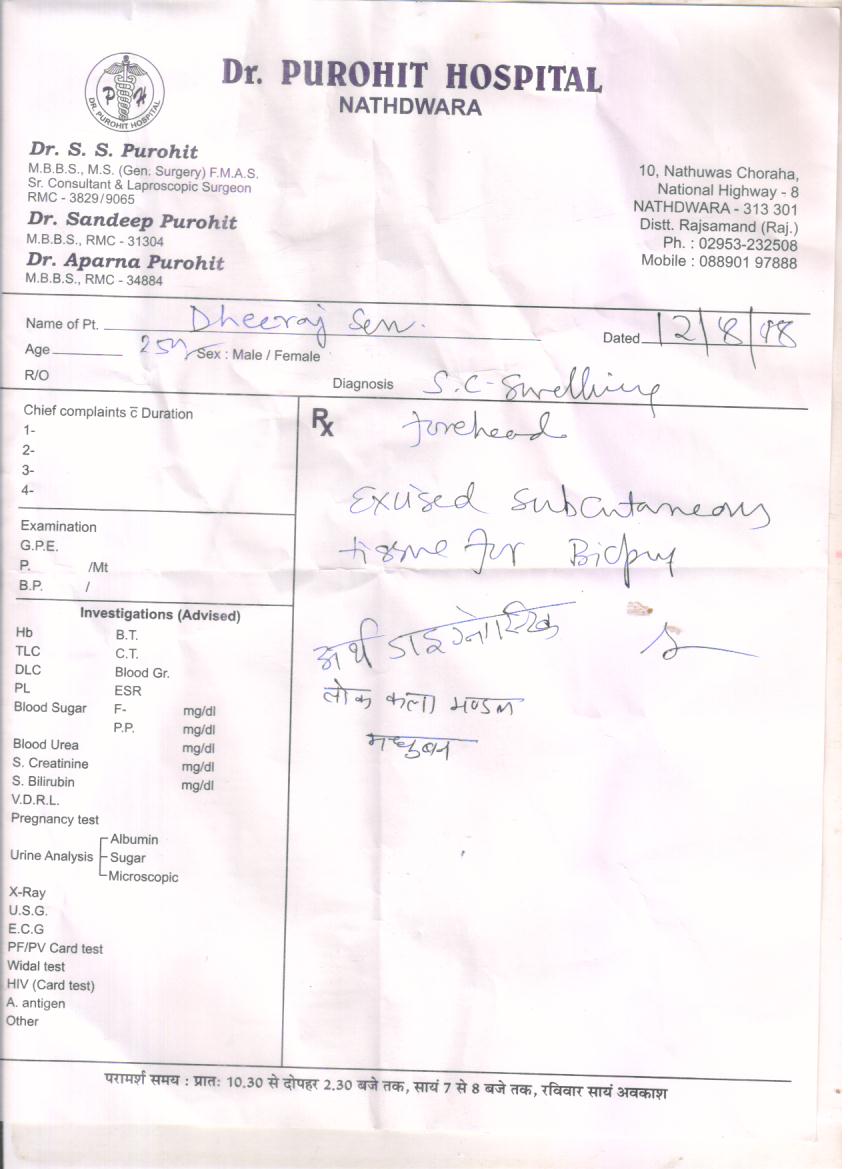 Dr. PUROHIT HOSPITAL
NATHDWARA
P H
DR. PUROHIT HOSPITAL
Dr. S. S. Purohit
M.B.B.S., M.S. (Gen. Surgery) F.M.A.S.
Sr. Consultant & Laproscopic Surgeon
RMC - 3829/9065
Dr. Sandeep Purohit
M.B.B.S., RMC - 31304
Dr. Aparna Purohit
M.B.B.S., RMC - 34884
10, Nathuwas Choraha,
National Highway - 8
NATHDWARA - 313 301
Distt. Rajsamand (Raj.)
Ph. : 02953-232508
Mobile : 088901 97888
Name of Pt. Dheeraj Sen.
Dated 12/8/18
Age 25 Sex : Male / Female
R/O
Diagnosis S.C- Swelling
forehead
Chief complaints c̄ Duration
1-
2-
3-
4-
Examination
G.P.E.
P. /Mt
B.P. /
Investigations (Advised)
Hb B.T.
TLC C.T.
DLC Blood Gr.
PL ESR
Blood Sugar F- mg/dl
P.P. mg/dl
Blood Urea mg/dl
S. Creatinine mg/dl
S. Bilirubin mg/dl
V.D.R.L.
Pregnancy test
Albumin
Urine Analysis Sugar
Microscopic
X-Ray
U.S.G.
E.C.G
PF/PV Card test
Widal test
HIV (Card test)
A. antigen
Other
Rx
Excised subcutaneous
tissue for Biopsy
अर्थ डाइग्नोस्टिक
लोक कला मण्डल
मधुबन
परामर्श समय : प्रातः 10.30 से दोपहर 2.30 बजे तक, सायं 7 से 8 बजे तक, रविवार सायं अवकाश